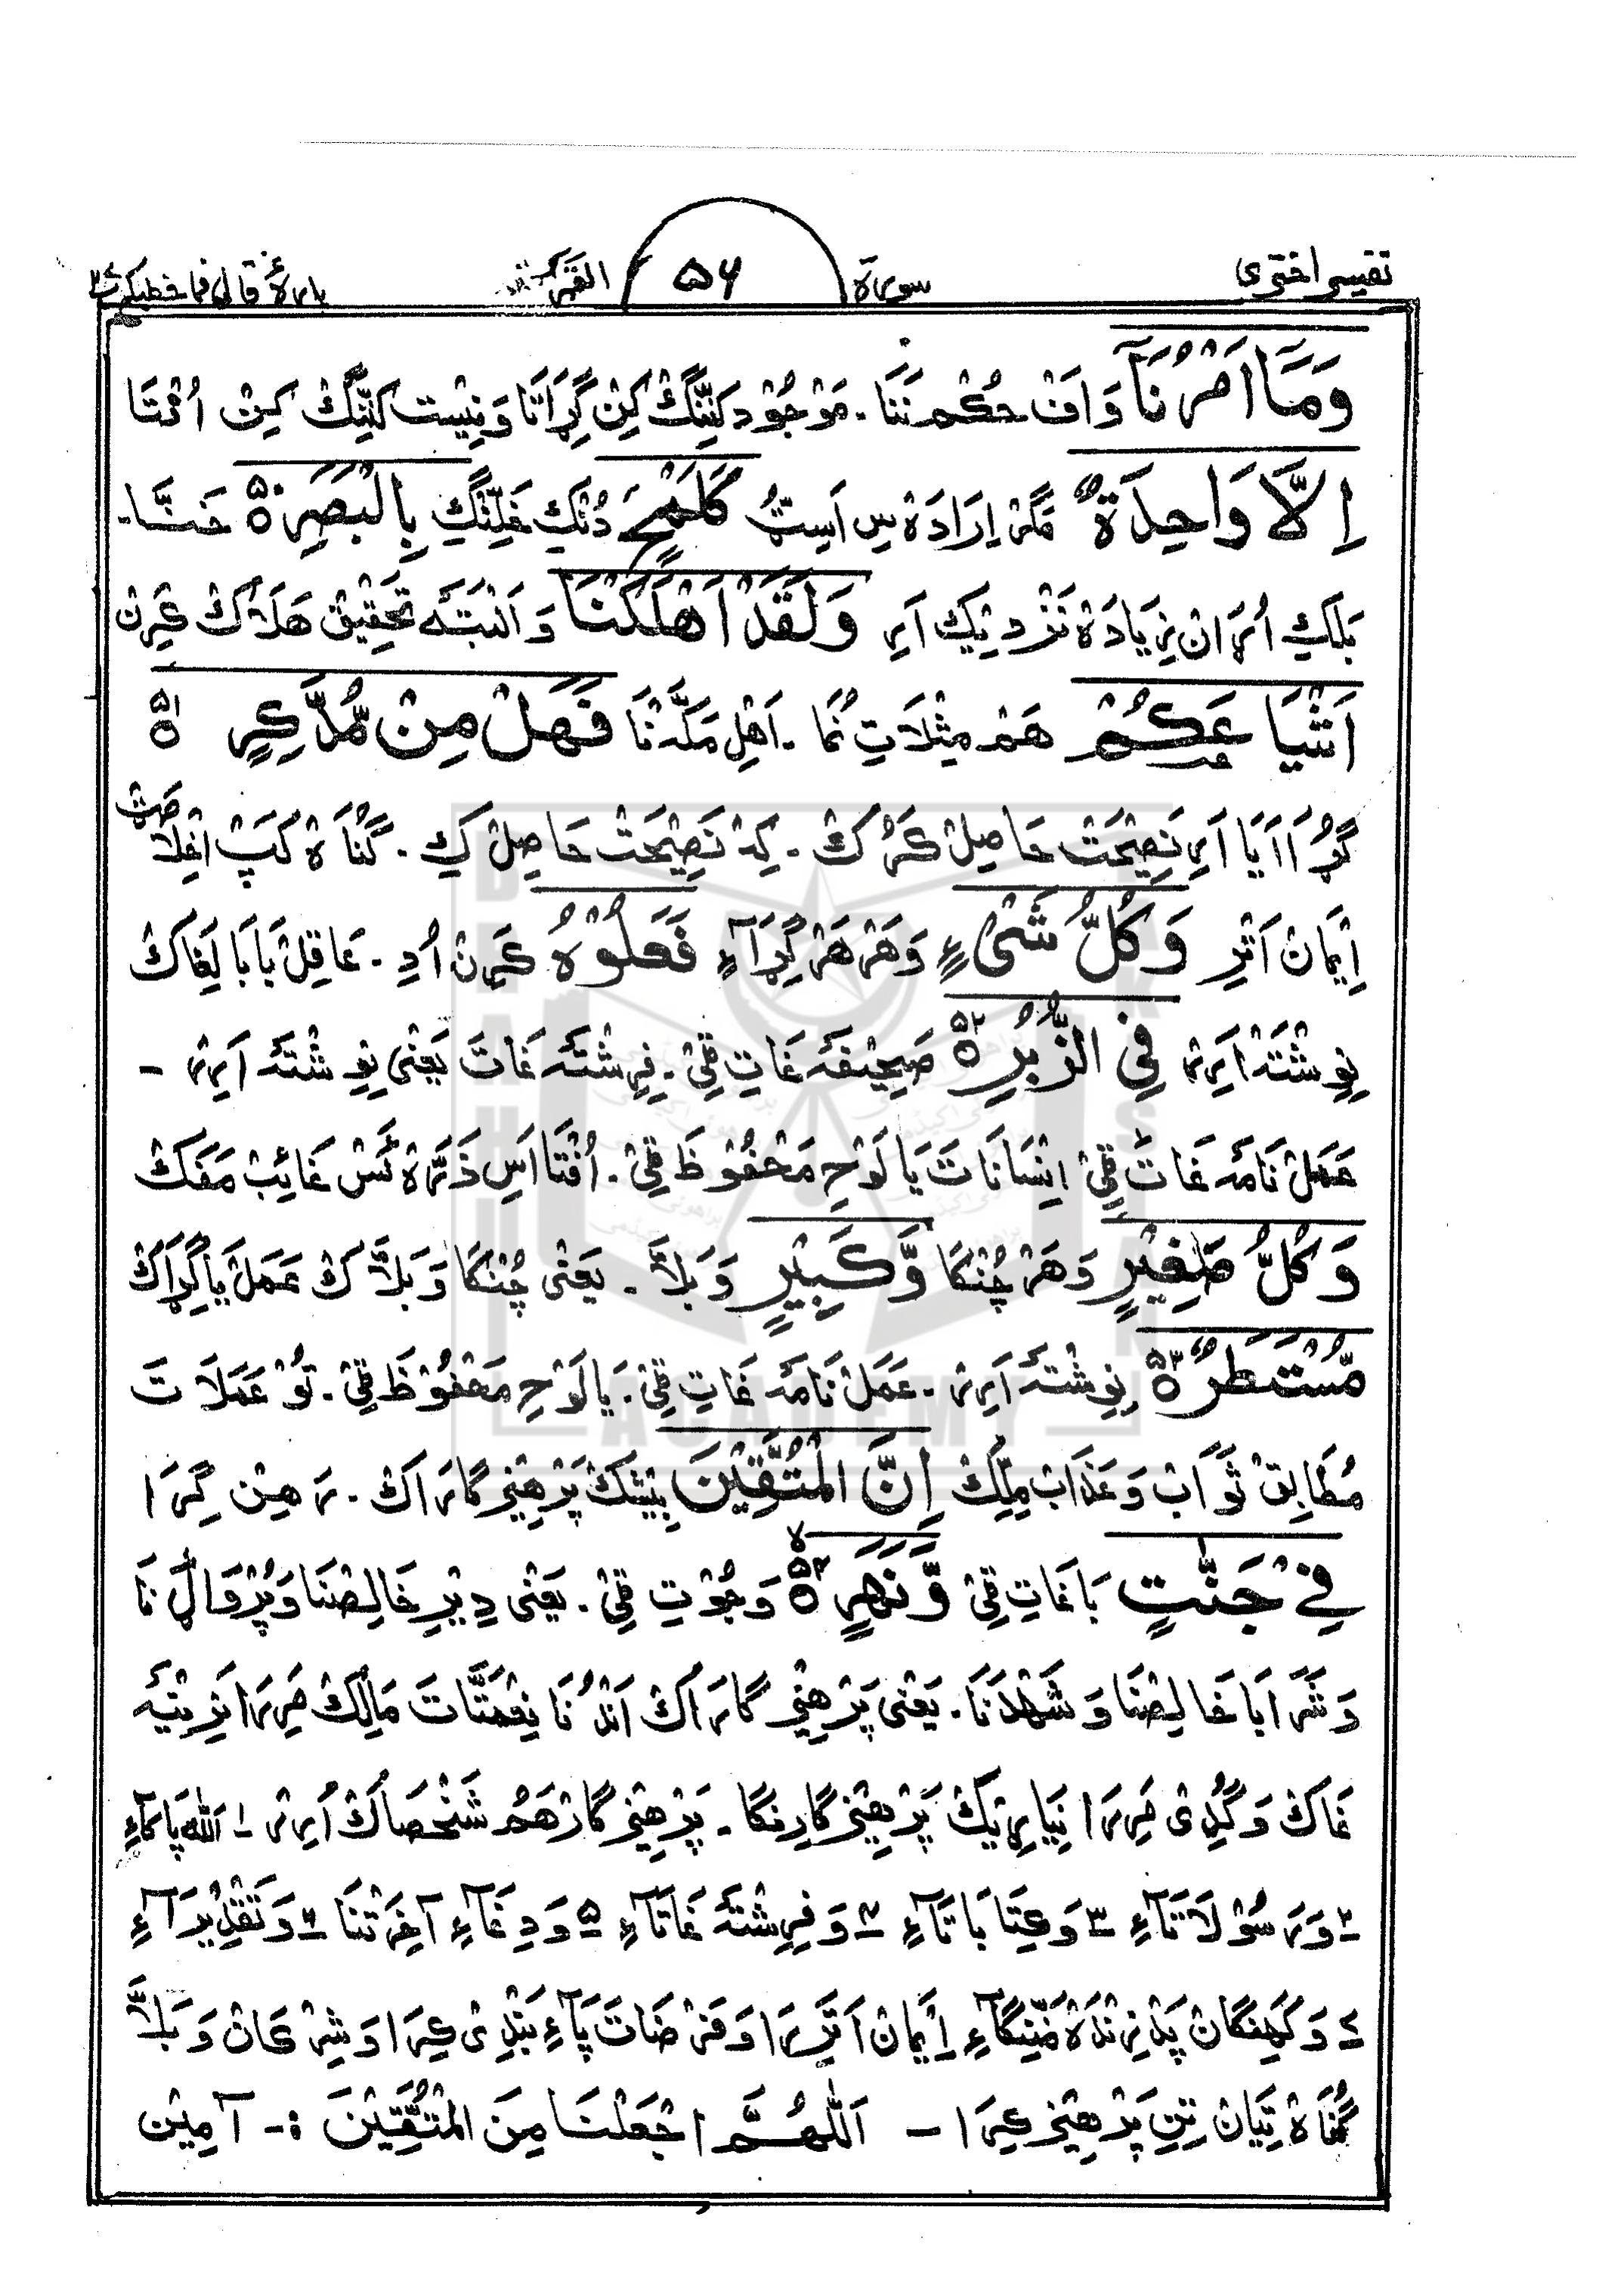 تفسیر اختری سورة ۵۶ القمر پارهٔ قال فما خطبکم
وَمَآ اَمْرُنَآ وَاَفْ حُکْم نَنَا ۔ مَوْجُوْد کَنِّنِگْ کِنْ گِڑَاتَا وَنِیْست کَنِّنِگْ کِنْ اُفْتَا
اِلَّا وَاحِدَةٌ مَگَرْ اِرَادَہْ سِ اَسِٹ کَلَمْحٍ دُنْکِ خَلِّنْگِ بِالْبَصَرِ ۵۰ خَنَّا۔
بَلْکِ اُرَانْ زِیَادَہْ نَزْدِیْک اَرِ وَلَقَدْ اَهْلَكْنَا وَاَلْبَتَّہ تَحْقِیْق هَلَاکْ کَرِنْ
اَشْیَاعَكُمْ هَمْ مِثْلَاتِ نُمَا ۔ اَهْلِ مَکَّہْ نَا فَهَلْ مِنْ مُّدَّكِرٍ ۵۱
گُڑَا اَیَا اَرِ نَصِیْحَتْ حَاصِلْ کَرُکْ ۔ کِہ نَصِیْحَتْ حَاصِلْ کِ ۔ گُنَاہْ کَپْ اِخْلَاصَٹ
اِیْمَانْ اَتْرِ وَكُلُّ شَیْءٍ وَهَرْ هَرْ گِڑَاءِ فَعَلُوْهُ کَرِنْ اُدِ ۔ عَاقِلْ بَابَا لِغَاکْ
نِوِشْتَہْ اَرِیْ فِی الزُّبُرِ ۵۲ صَحِیْفَہْ غَاتِ ٹِیْ ۔ فِرِشْتَہ غَاتَ یَعْنٰی نِوِشْتَہ اَرِیْ ۔
عَمَلْ نَامَہ غَاتَ ٹِیْ اِنْسَانَاتَ یَا لَوْحِ مَحْفُوْظَ ٹِیْ ۔ اُفْتَا اَسِ ذَرَّہْ ئَسْ غَائِبْ مَفَکْ
وَكُلُّ صَغِیْرٍ وَهَرْ چُنْکَا وَّكَبِیْرٍ وَبَلَّا ۔ یَعْنٰی چُنْکَا وَبَلَّاکْ عَمَلْ یَا گِڑَاکْ
مُّسْتَطَرٌ ۵۳ نِوِشْتَہ اَرِیْ ۔ عَمَلْ نَامَہ غَاتِ ٹِیْ ۔ یَا لَوْحِ مَحْفُوْظَ ٹِیْ ۔ تُوْ عَمَلَاتَ
مُطَابِقْ ثَوَابْ وَعَذَابْ مِلِّکْ اِنَّ الْمُتَّقِیْنَ بِیْشَکْ پَرْهِیْزگَارَاکْ ۔ رَهِنْ گِرَا
فِیْ جَنّٰتٍ بَاغَاتِ ٹِیْ وَّنَهَرٍ ۵۴ وَجُوْتِ ٹِیْ ۔ یَعْنٰی دِیْرِ خَالِصْنَا وَپُرْ وَالْ نَا
وَشَرَابَا خَالِصْنَا وَشَهْدْنَا ۔ یَعْنٰی پَرْهِیْزگَارَاکْ اَنْدُنَا نِعْمَتَاتَ مَالِکْ مَرِرَا نَرِیْنَہ
غَاکْ وَگُدِیْ مَرِرَا نِیَارِیْکْ پَرْهِیْزگَارِنْگَا ۔ پَرْهِیْزگَارْ هَمْ شَخْصَاکْ اَرِیْ ۱۔ اَللّٰہ پَاکَاءِ
۲۔ وَرَسُوْلَاتَاءِ ۳۔ وَکِتَابَاتَاءِ ۴۔ وَفِرِشْتَہ غَاتَاءِ ۵ وَدِغَاءِ آخِرَتْنَا ۶۔ وَتَقْدِیْرَاءِ
۷۔ وَکَهِنْگَانْ پَدْ زِنْدَہْ مَنِّنْگَاءِ اِیْمَانْ اَتَرِرَا وَفَرْضَاتَ پَاءِ بَنْدِیْ کِرَا وَشِرْکَانْ وَبَلَّا
گُنَاہْ تِیَانْ تِنِ پَرْهِیْز کِرَا ۔ اَللّٰهُمَّ اجْعَلْنَا مِنَ الْمُتَّقِیْنَ :۔ آمِیْن
BRAHUI ACADEMY